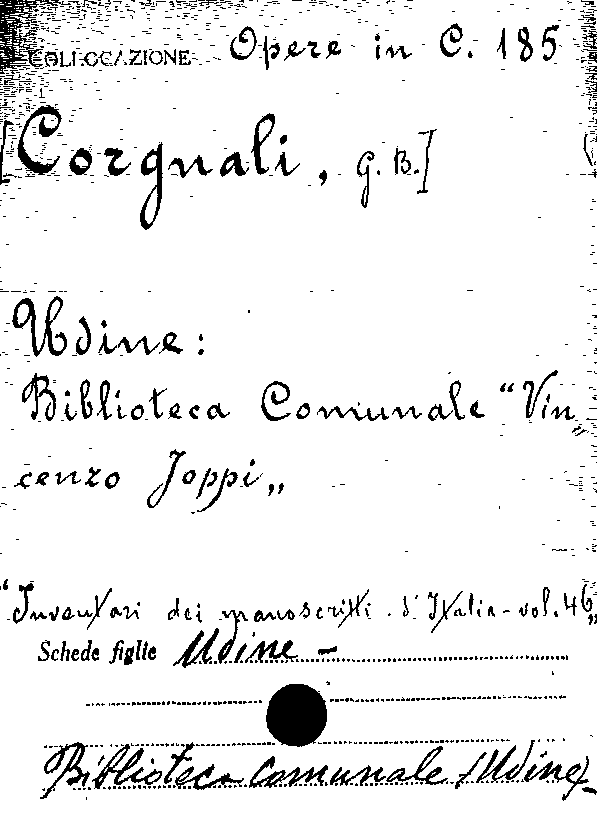 COLLOCAZIONE Opere in C. 185
[Corgnali, G. B.]
Udine:
Biblioteca Comunale "Vin„
cenzo Joppi„
"Inventari dei manoscritti d'Italia - vol. 46„
Schede figlie Udine -
Biblioteca Comunale (Udine)